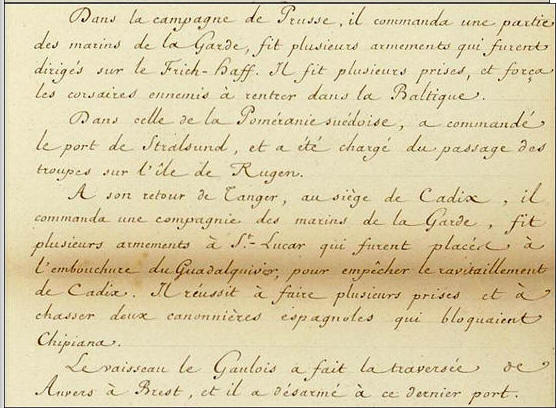 Dans la campagne de Prusse, il commanda une partie
des marins de la Garde, fit plusieurs armements qui furent
dirigés sur le Frich-Haff. Il fit plusieurs prises, et força
les corsaires ennemis à rentrer dans la Baltique.
Dans celle de la Poméranie suédoise, a commandé
le port de Stralsund, et a été chargé du passage des
troupes sur l'île de Rugen.
A son retour de Tanger, au siège de Cadix, il
commanda une compagnie des marins de la Garde, fit
plusieurs armements à St-Lucar qui furent placés à
l'embouchure du Guadalquivir, pour empêcher le ravitaillement
de Cadix. Il réussit à faire plusieurs prises et à
chasser deux canonnières espagnoles qui bloquaient
Chipiana.
Le vaisseau le Gaulois a fait la traversée de
Anvers à Brest, et il a désarmé à ce dernier port.